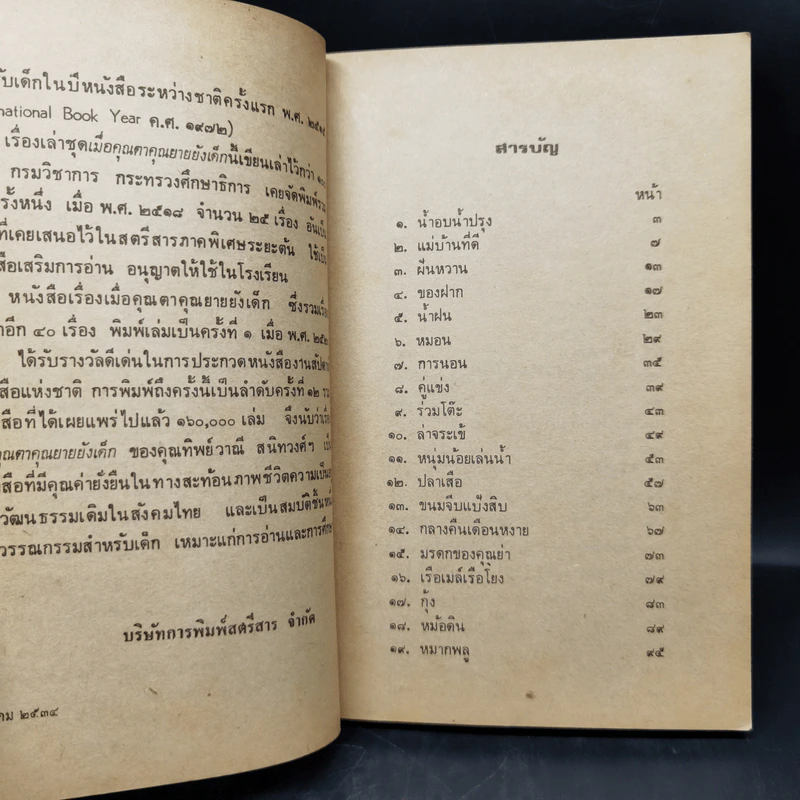 เด็กในปีหนังสือระหว่างชาติครั้งแรก พ.ศ. ๒๕๑๕
national Book Year ค.ศ. ๑๙๗๒)
เรื่องเล่าชุดเมื่อคุณตาคุณยายยังเด็กนี้เขียนเล่าไว้กว่า
กรมวิชาการ กระทรวงศึกษาธิการ เคยจัดพิมพ์
ครั้งหนึ่ง เมื่อ พ.ศ. ๒๕๑๘ จำนวน ๒๕ เรื่อง อันเป็น
ที่เคยเสนอไว้ในสตรีสารภาคพิเศษระยะต้น ใช้เป็น
สือเสริมการอ่าน อนุญาตให้ใช้ในโรงเรียน
หนังสือเรื่องเมื่อคุณตาคุณยายยังเด็ก ซึ่งรวม
อีก ๔๐ เรื่อง พิมพ์เล่มเป็นครั้งที่ ๑ เมื่อ พ.ศ.
ได้รับรางวัลดีเด่นในการประกวดหนังสืองาน
สือแห่งชาติ การพิมพ์ถึงครั้งนี้เป็นลำดับครั้งที่ ๑๒
สือที่ได้เผยแพร่ไปแล้ว ๑๖๐,๐๐๐ เล่ม จึงนับว่า
คุณตาคุณยายยังเด็ก ของคุณทิพย์วาณี สนิทวงศ์ฯ
สือที่มีคุณค่ายั่งยืนในทางสะท้อนภาพชีวิตความเป็น
วัฒนธรรมเดิมในสังคมไทย และเป็นสมบัติชิ้น
วรรณกรรมสำหรับเด็ก เหมาะแก่การอ่านและการ
บริษัทการพิมพ์สตรีสาร จำกัด
คม ๒๕๓๔
สารบัญ
หน้า
๑. น้ำอบน้ำปรุง ๓
๒. แม่บ้านที่ดี ๗
๓. ฝันหวาน ๑๓
๔. ของฝาก ๑๗
๕. น้ำฝน ๒๓
๖. หมอน ๒๙
๗. การนอน ๓๕
๘. คู่แข่ง ๓๙
๙. ร่วมโต๊ะ ๔๓
๑๐. ล่าจระเข้ ๔๙
๑๑. หนุ่มน้อยเล่นน้ำ ๕๓
๑๒. ปลาเสือ ๕๗
๑๓. ขนมจีบแป้งสิบ ๖๓
๑๔. กลางคืนเดือนหงาย ๖๗
๑๕. มรดกของคุณย่า ๗๓
๑๖. เรือเมล์เรือโยง ๗๙
๑๗. กุ้ง ๘๓
๑๘. หม้อดิน ๘๙
๑๙. หมากพลู ๙๕